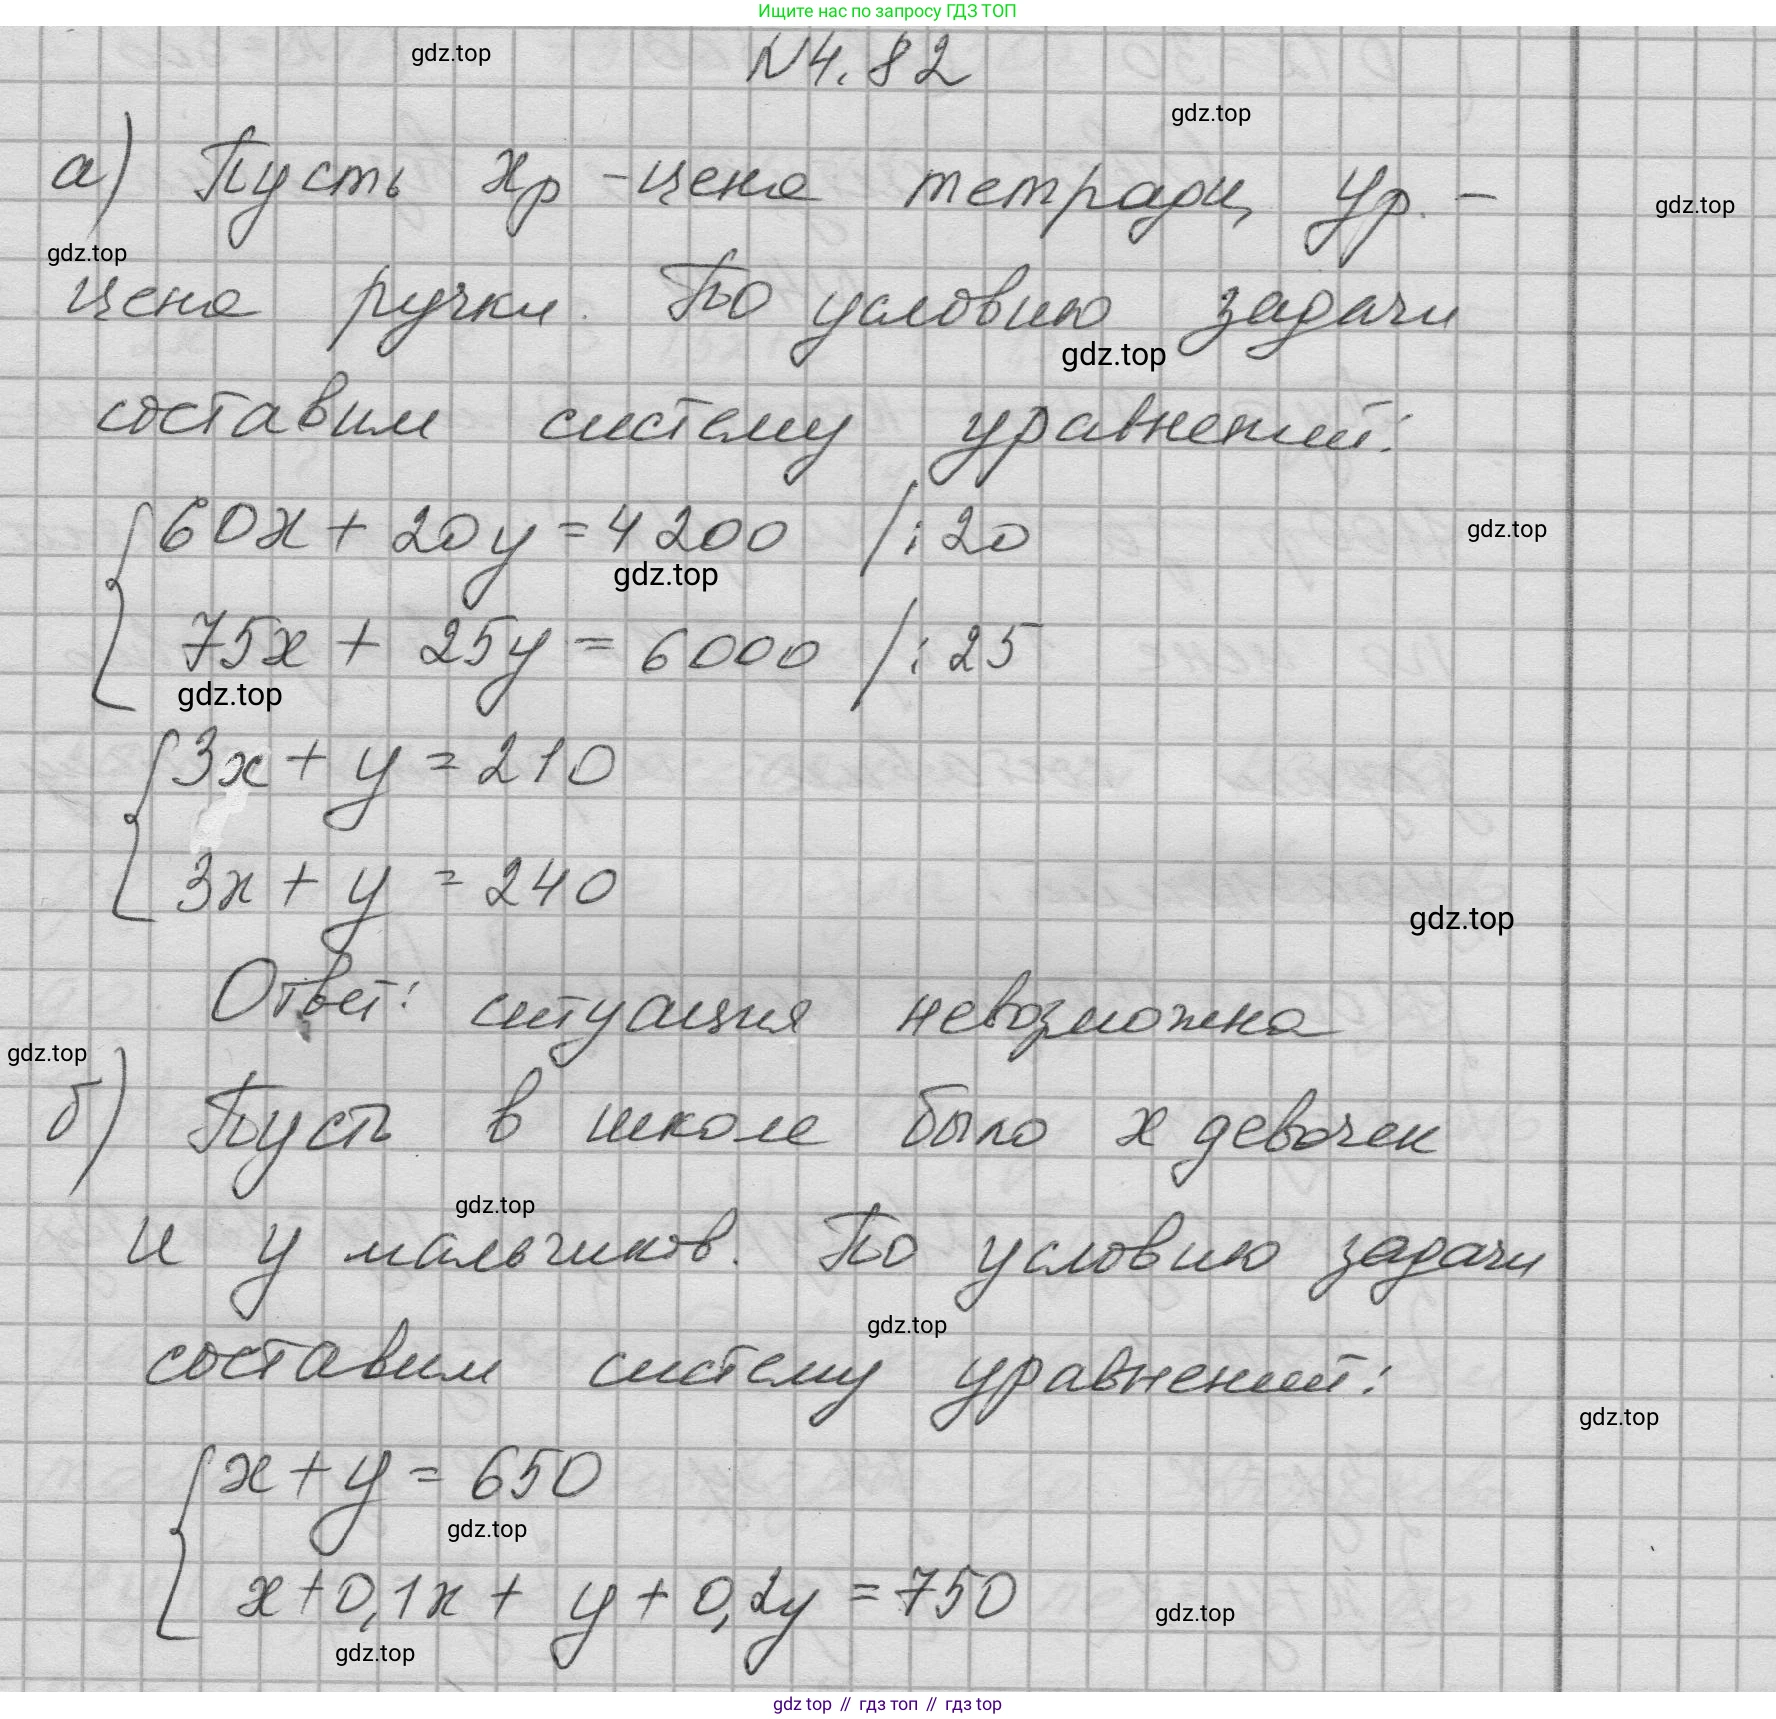 Ищите нас по запросу ГДЗ ТОП
gdz.top
N4.82
gdz.top
а) Пусть xр - цена тетради, yр. -
gdz.top
gdz.top
цена ручки. По условию задачи
gdz.top
составим систему уравнений:
60x + 20y = 4200 /:20
gdz.top
gdz.top
75x + 25y = 6000 /:25
gdz.top
3x + y = 210
3x + y = 240
gdz.top
Ответ: ситуация невозможна
gdz.top
б) Пусть в школе было x девочек
gdz.top
и y мальчиков. По условию задачи
gdz.top
составим систему уравнений:
gdz.top
x + y = 650
gdz.top
x + 0,1x + y + 0,2y = 750
gdz.top
gdz.top
gdz top // гдз топ // гдз top